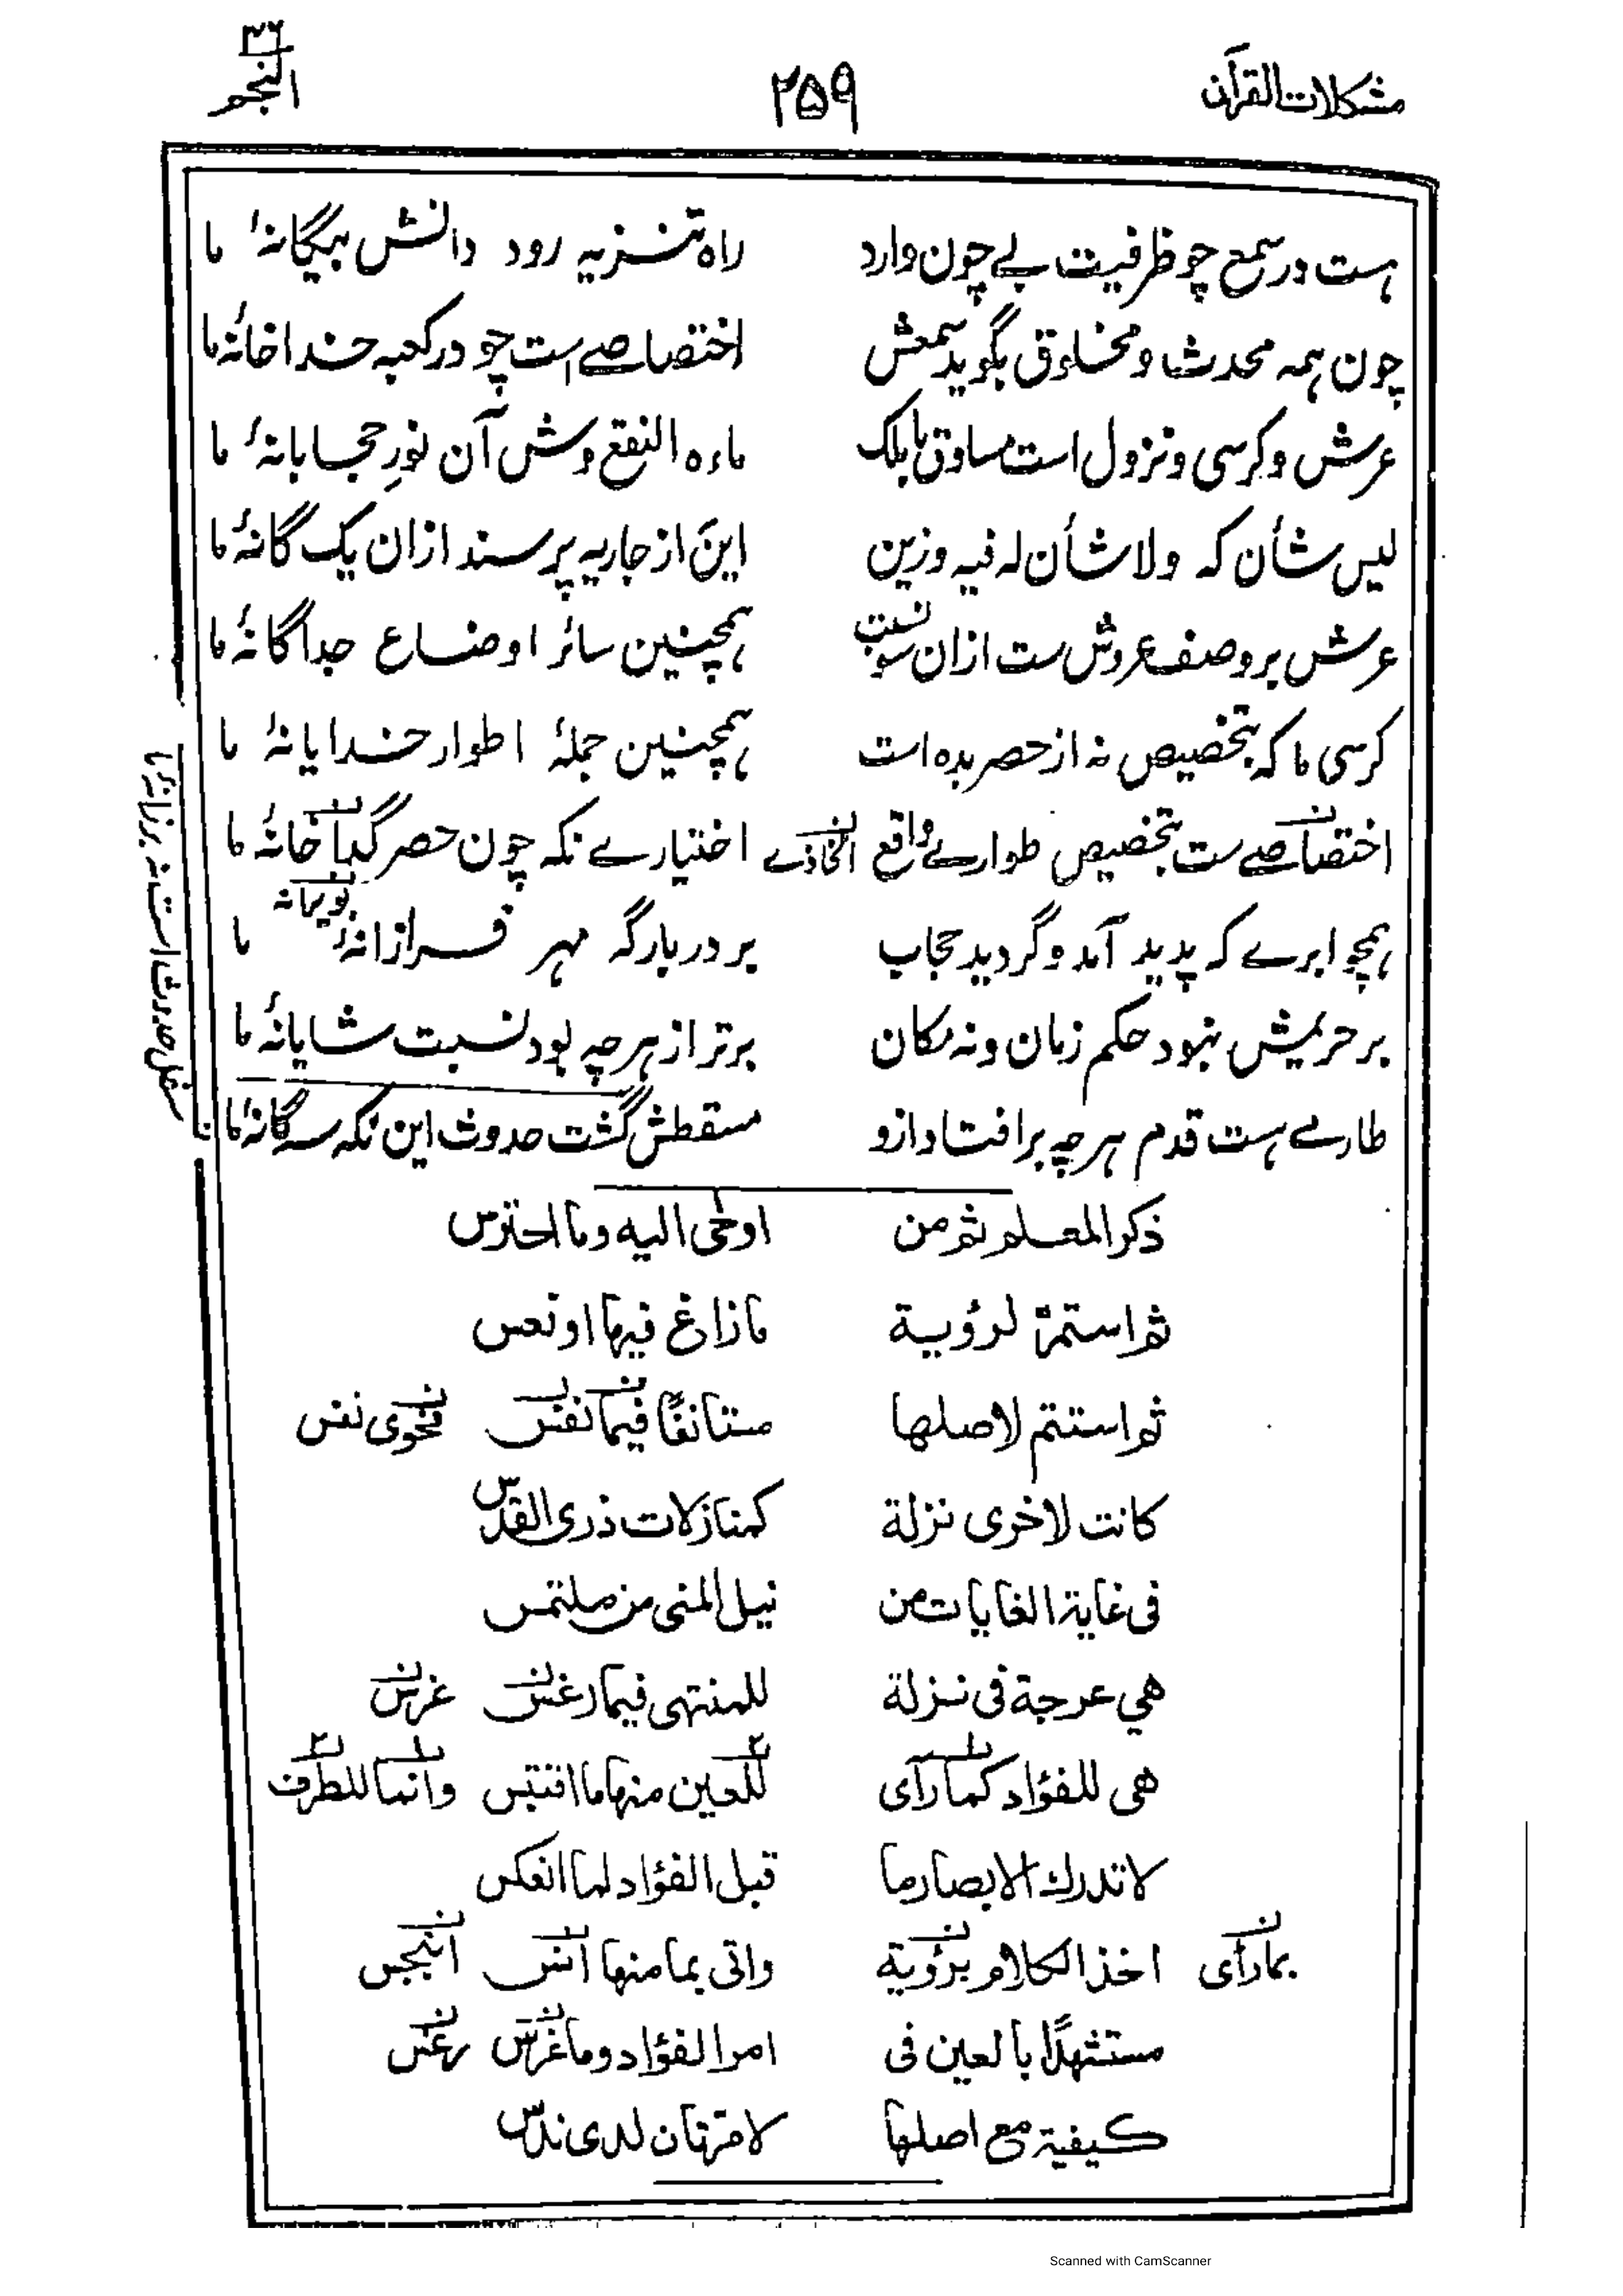 مشکلات القرآن ۲۵۹ النجم
ہست در سمع چو ظرفیت بے چون وارد راہ تنزیہ رود دانش بیگانۂ ما
چون ہمہ محدث و مخلوق بگوید سمعش اختصاصے است چو در کعبہ خدا خانۂ ما
عرش و کرسی و نزول است مساوق با ملک ماءہ النقع وش آن نورِ حجابانۂ ما
لیس شأن کہ ولا شأن لہ فیہ وزین اینَ از جاریہ پرسند ازان یک گانۂ ما
عرش بر وصف عروش ست ازان سو نسبت ہمچنین سائر اوضاع جداگانۂ ما
کرسی ما کہ بتخصیص نہ از حصر بدہ است ہمچنین جملۂ اطوار خدایانۂ ما
اختصاصے ست بتخصیص طوارے واقع اتخاذے اختیارے نکہ چون حصر خانۂ ما
ہمچو ابرے کہ پدید آمد و گردید حجاب بر در بارگہ مہر فرازانۂ ما
بر حریمش نبود حکم زمان و نہ مکان برتر از ہرچہ بود نسبت شایانۂ ما
طارے ہست قدم ہرچہ برافتاد ازو مسقطش گشت حدوث این نکہ سہ گانۂ ما
ذكر المعلم ثم من اوحى اليه وما احترس
ثم استمرّ لرؤية ما زاغ فيها او نعس
ثم استتم لاصلها مستانفًا فيما نفس فحوى نفس
كانت لاخرى نزلة كمنازلات ذرى القدس
فى غاية الغايات من نيل المنى من ملتمس
هي عرجة فى نزلة للمنتهى فيما رغس غرس
هى للفؤاد كما رآى للعين منها ما اقتبس وانما للطرف
لا تدرك الابصار ما قبل الفؤاد لما انعكس
بما رأى اخذ الكلام برؤية واتى بما منها انبجس
مستشهدًا بالعين فى امر الفؤاد وما غرس رغس
كيفية مع اصلها لاقرتان لدى ندس
Scanned with CamScanner